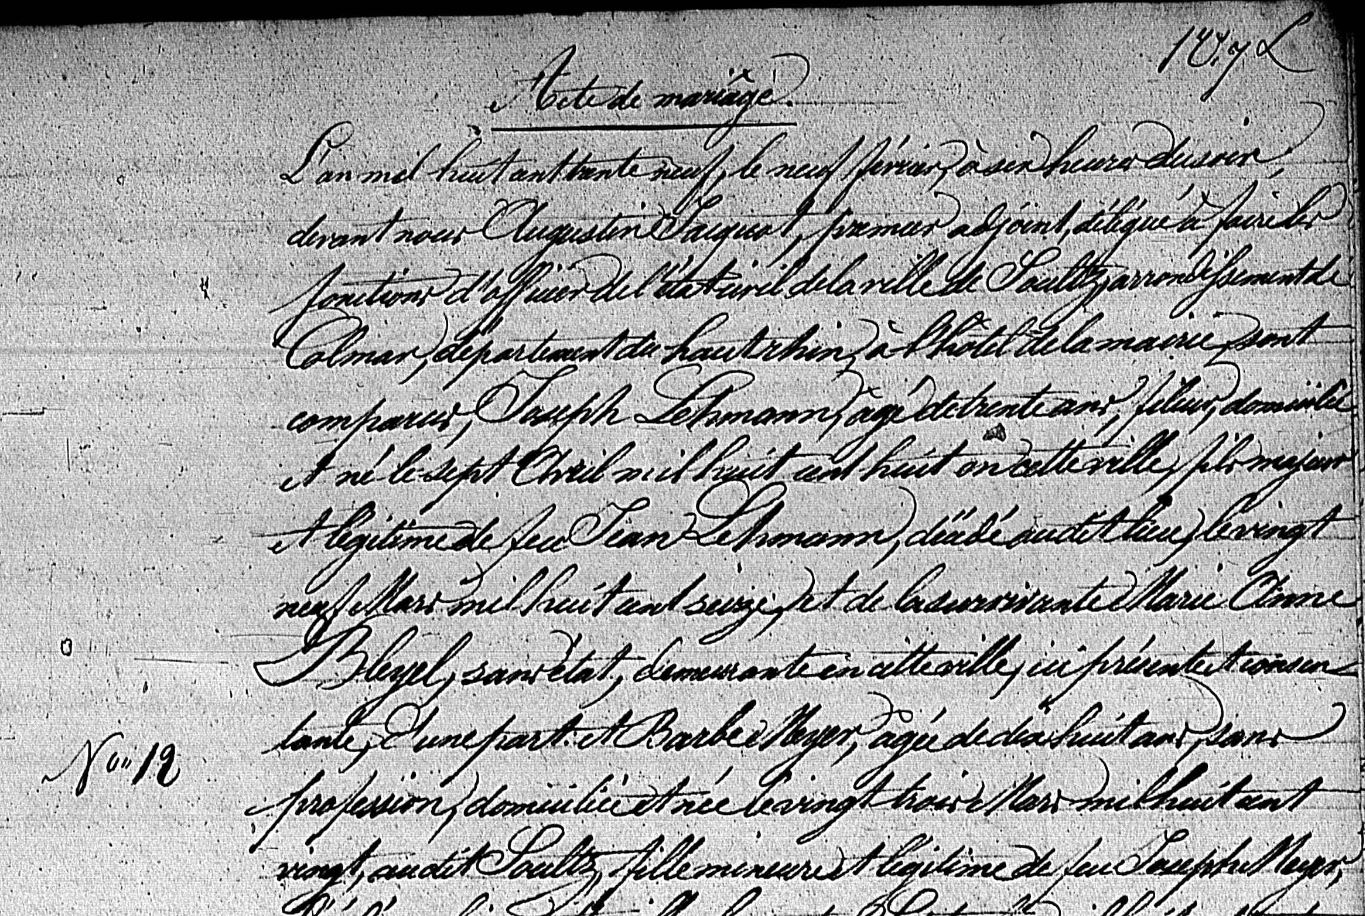 Acte de mariage.
L'an mil huit cent trente neuf, le neuf février, à six heures du soir,
devant nous Augustin Jacquot, premier adjoint, délégué à faire les
fonctions d'officier de l'état civil de la ville de Soultz, arrondissement de
Colmar, département du haut rhin, à l'hôtel de la mairie, sont
comparus, Joseph Lehmann, âgé de trente ans, fileur, domicilié
et né le sept Avril mil huit cent huit en cette ville, fils majeur
et légitime de feu Jean Lehmann, décédé audit lieu, le vingt
neuf Mars mil huit cent seize, et de la survivante Marie Anne
Bleyel, sans état, demeurante en cette ville, ici présente et consen-
tante, d'une part. et Barbe Meyer, âgée de dix huit ans, sans
No 12
profession, domiciliée et née le vingt trois Mars mil huit cent
vingt, audit Soultz, fille mineure et légitime de feu Joseph Meyer,